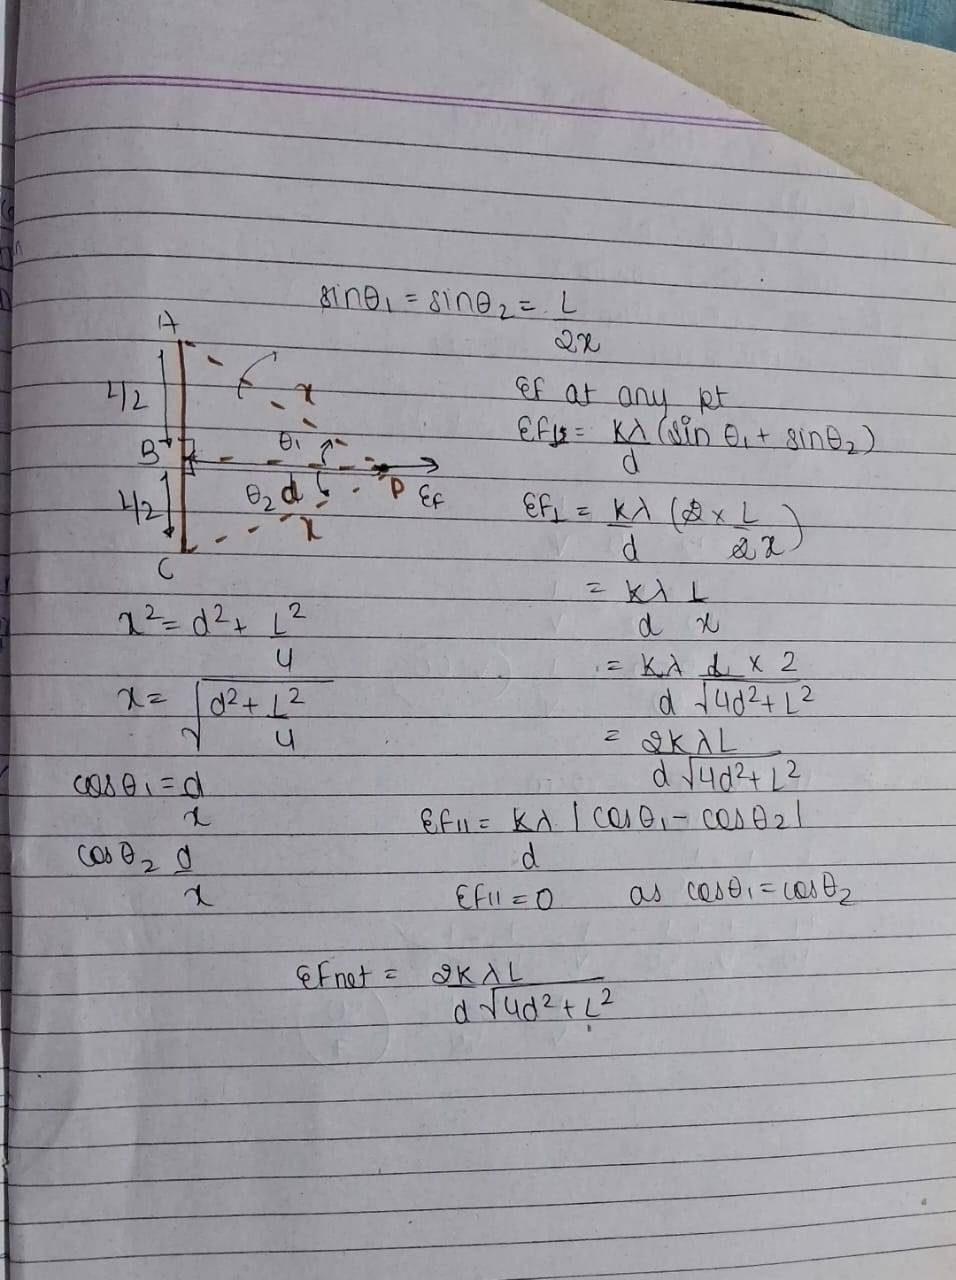 sinθ₁ = sinθ₂ = L
2x
A
L/2
x
B
θ₁
θ₂ d
P
EF
L/2
x
C
EF at any pt
EF⊥ = Kλ (sin θ₁ + sinθ₂)
d
EF⊥ = Kλ (2 × L)
d 2x
= Kλ L
d x
x² = d² + L²
4
x = √d² + L²
4
= Kλ L × 2
d √4d² + L²
= 2KλL
d √4d² + L²
cosθ₁ = d
x
cosθ₂ d
x
EF|| = Kλ |cosθ₁ - cosθ₂|
d
EF|| = 0 as cosθ₁ = cosθ₂
EFnet = 2KλL
d √4d² + L²